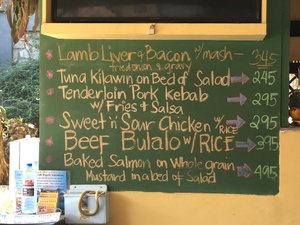 Lamb Liver & Bacon w/ mash 345
fried onion & gravy
Tuna Kilawin on Bed of Salad 245
Tenderloin Pork kebab
w/ Fries & Salsa 295
Sweet 'n' Sour Chicken w/ RICE 295
Beef Bulalo w/ RICE 395
Baked Salmon on Whole grain
Mustard in a bed of Salad 495